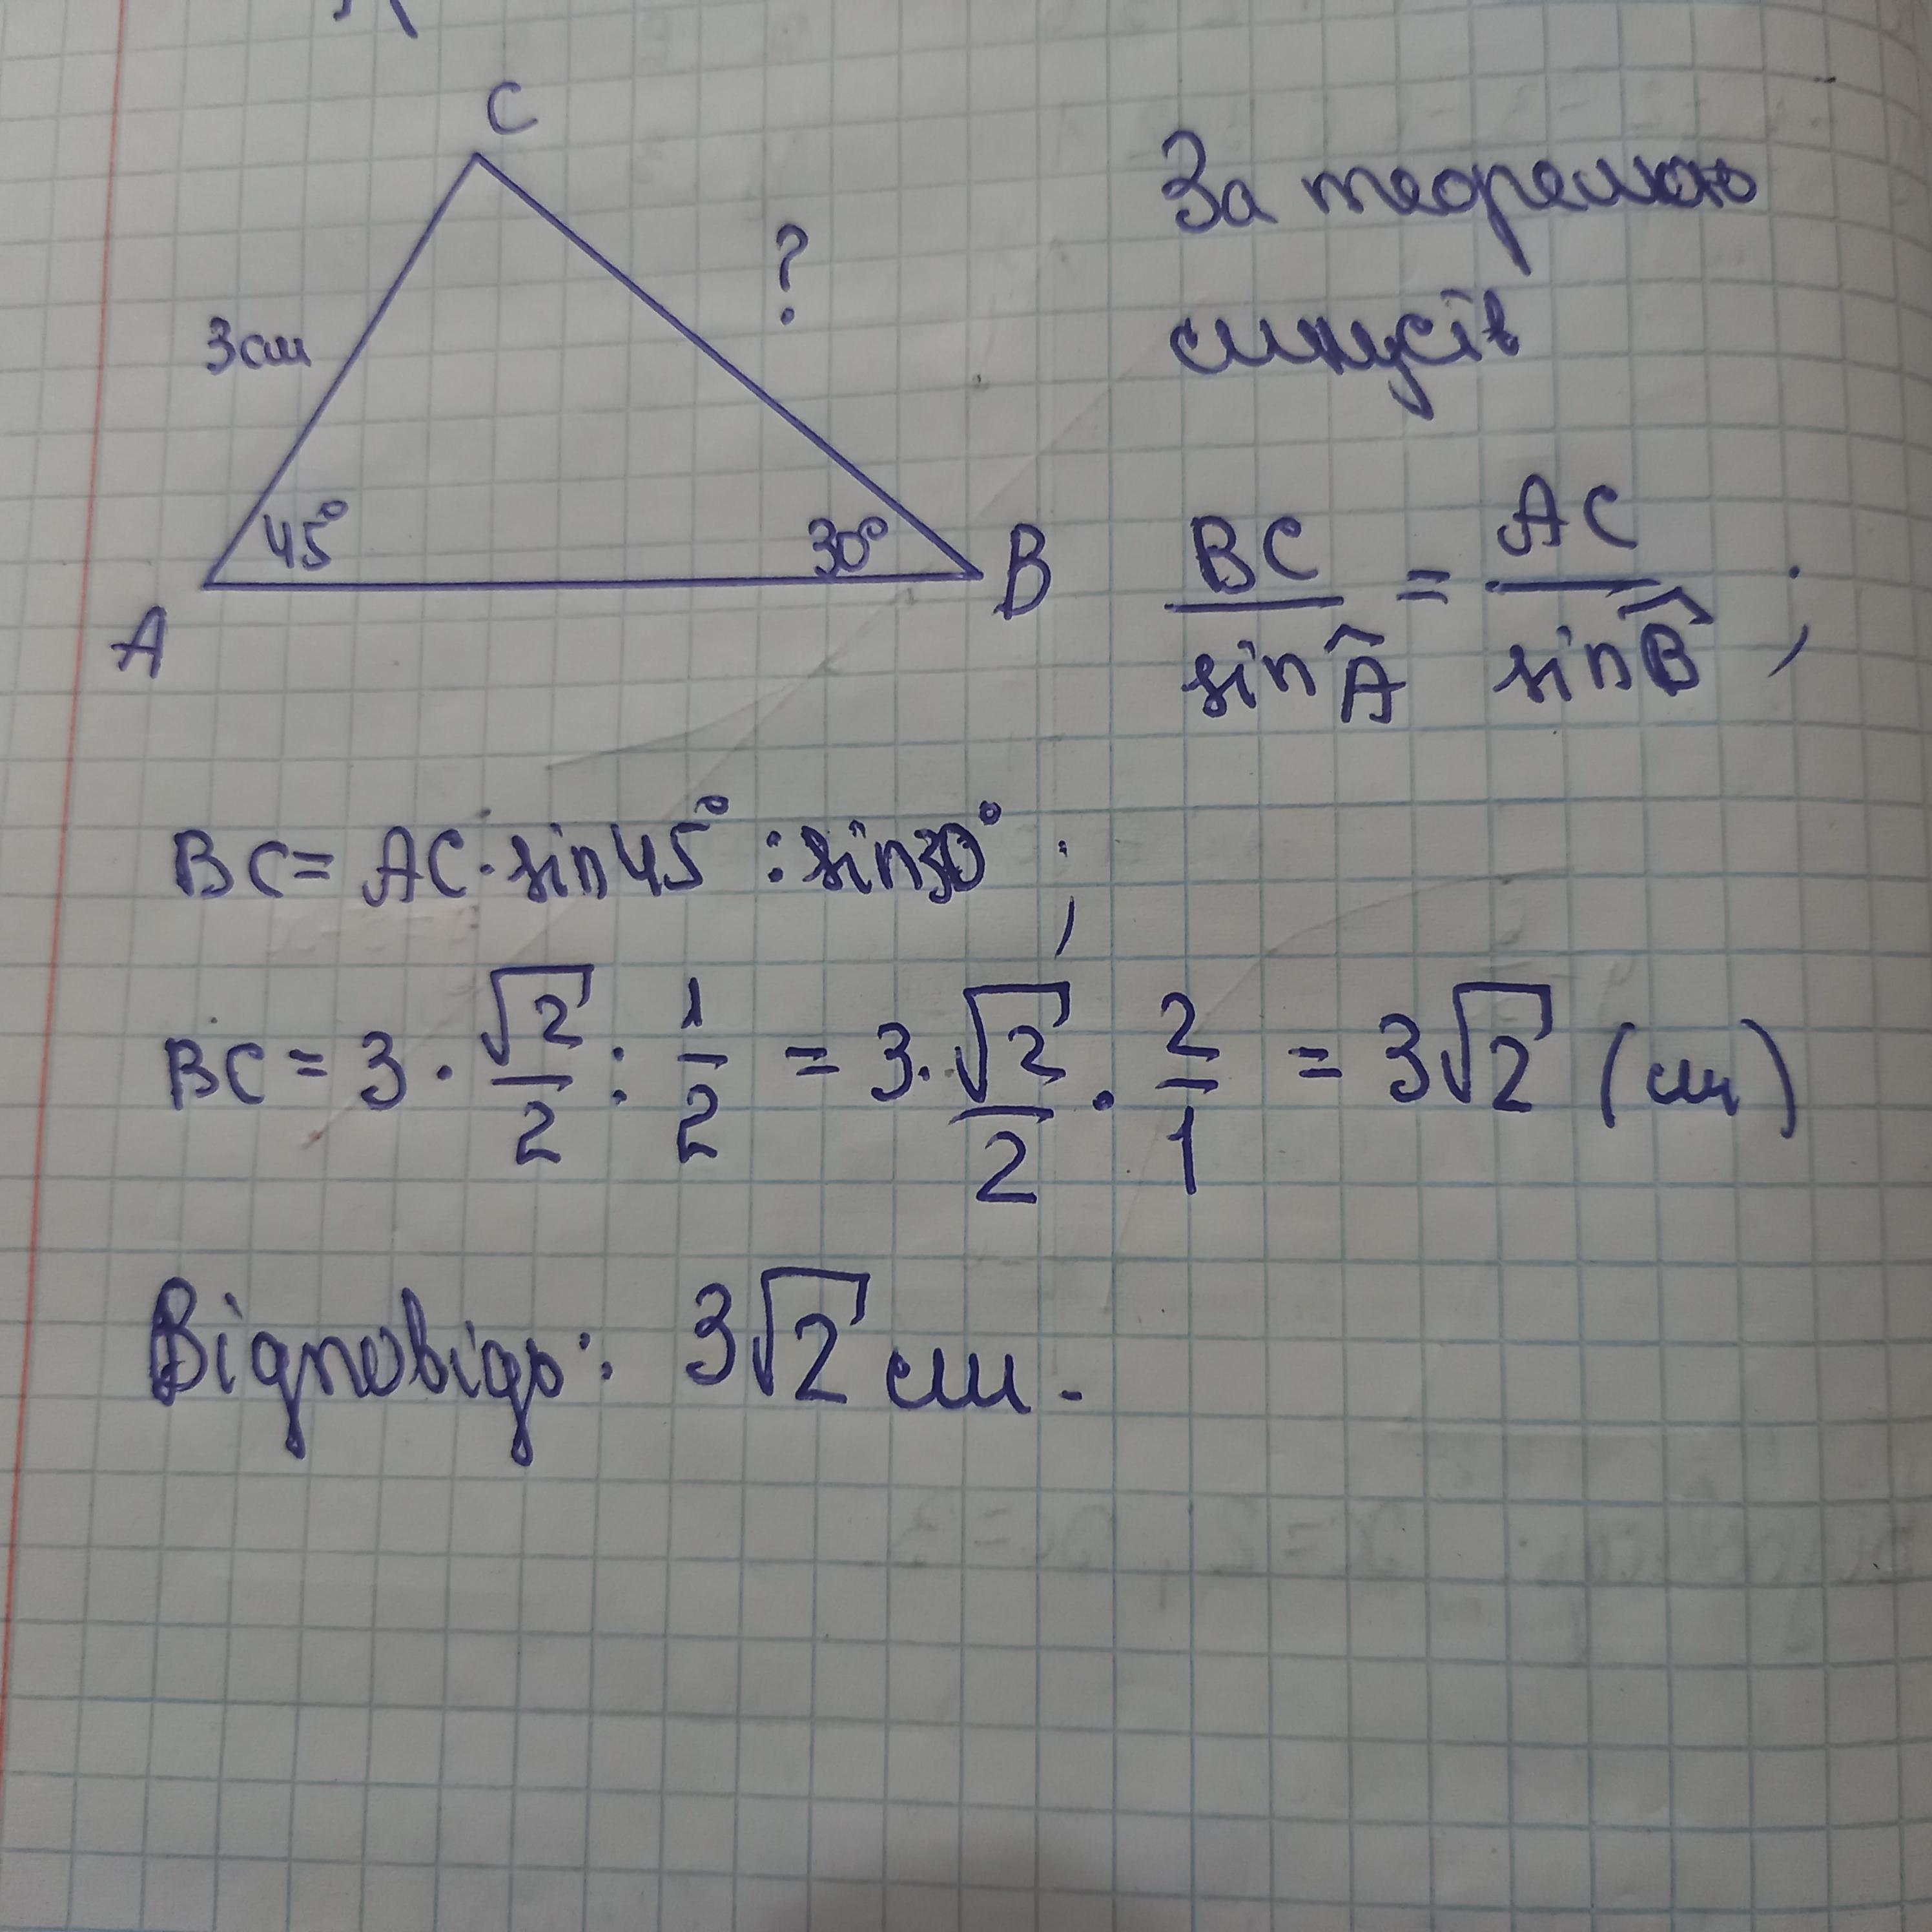 C
?
3см
45°
30°
A
B
За теоремою
синусів
BC/sin Â = AC/sin B̂ ;
BC = AC · sin 45° : sin 30° ;
BC = 3 · √2/2 : 1/2 = 3 · √2/2 · 2/1 = 3√2 (см)
Відповідь: 3√2 см.